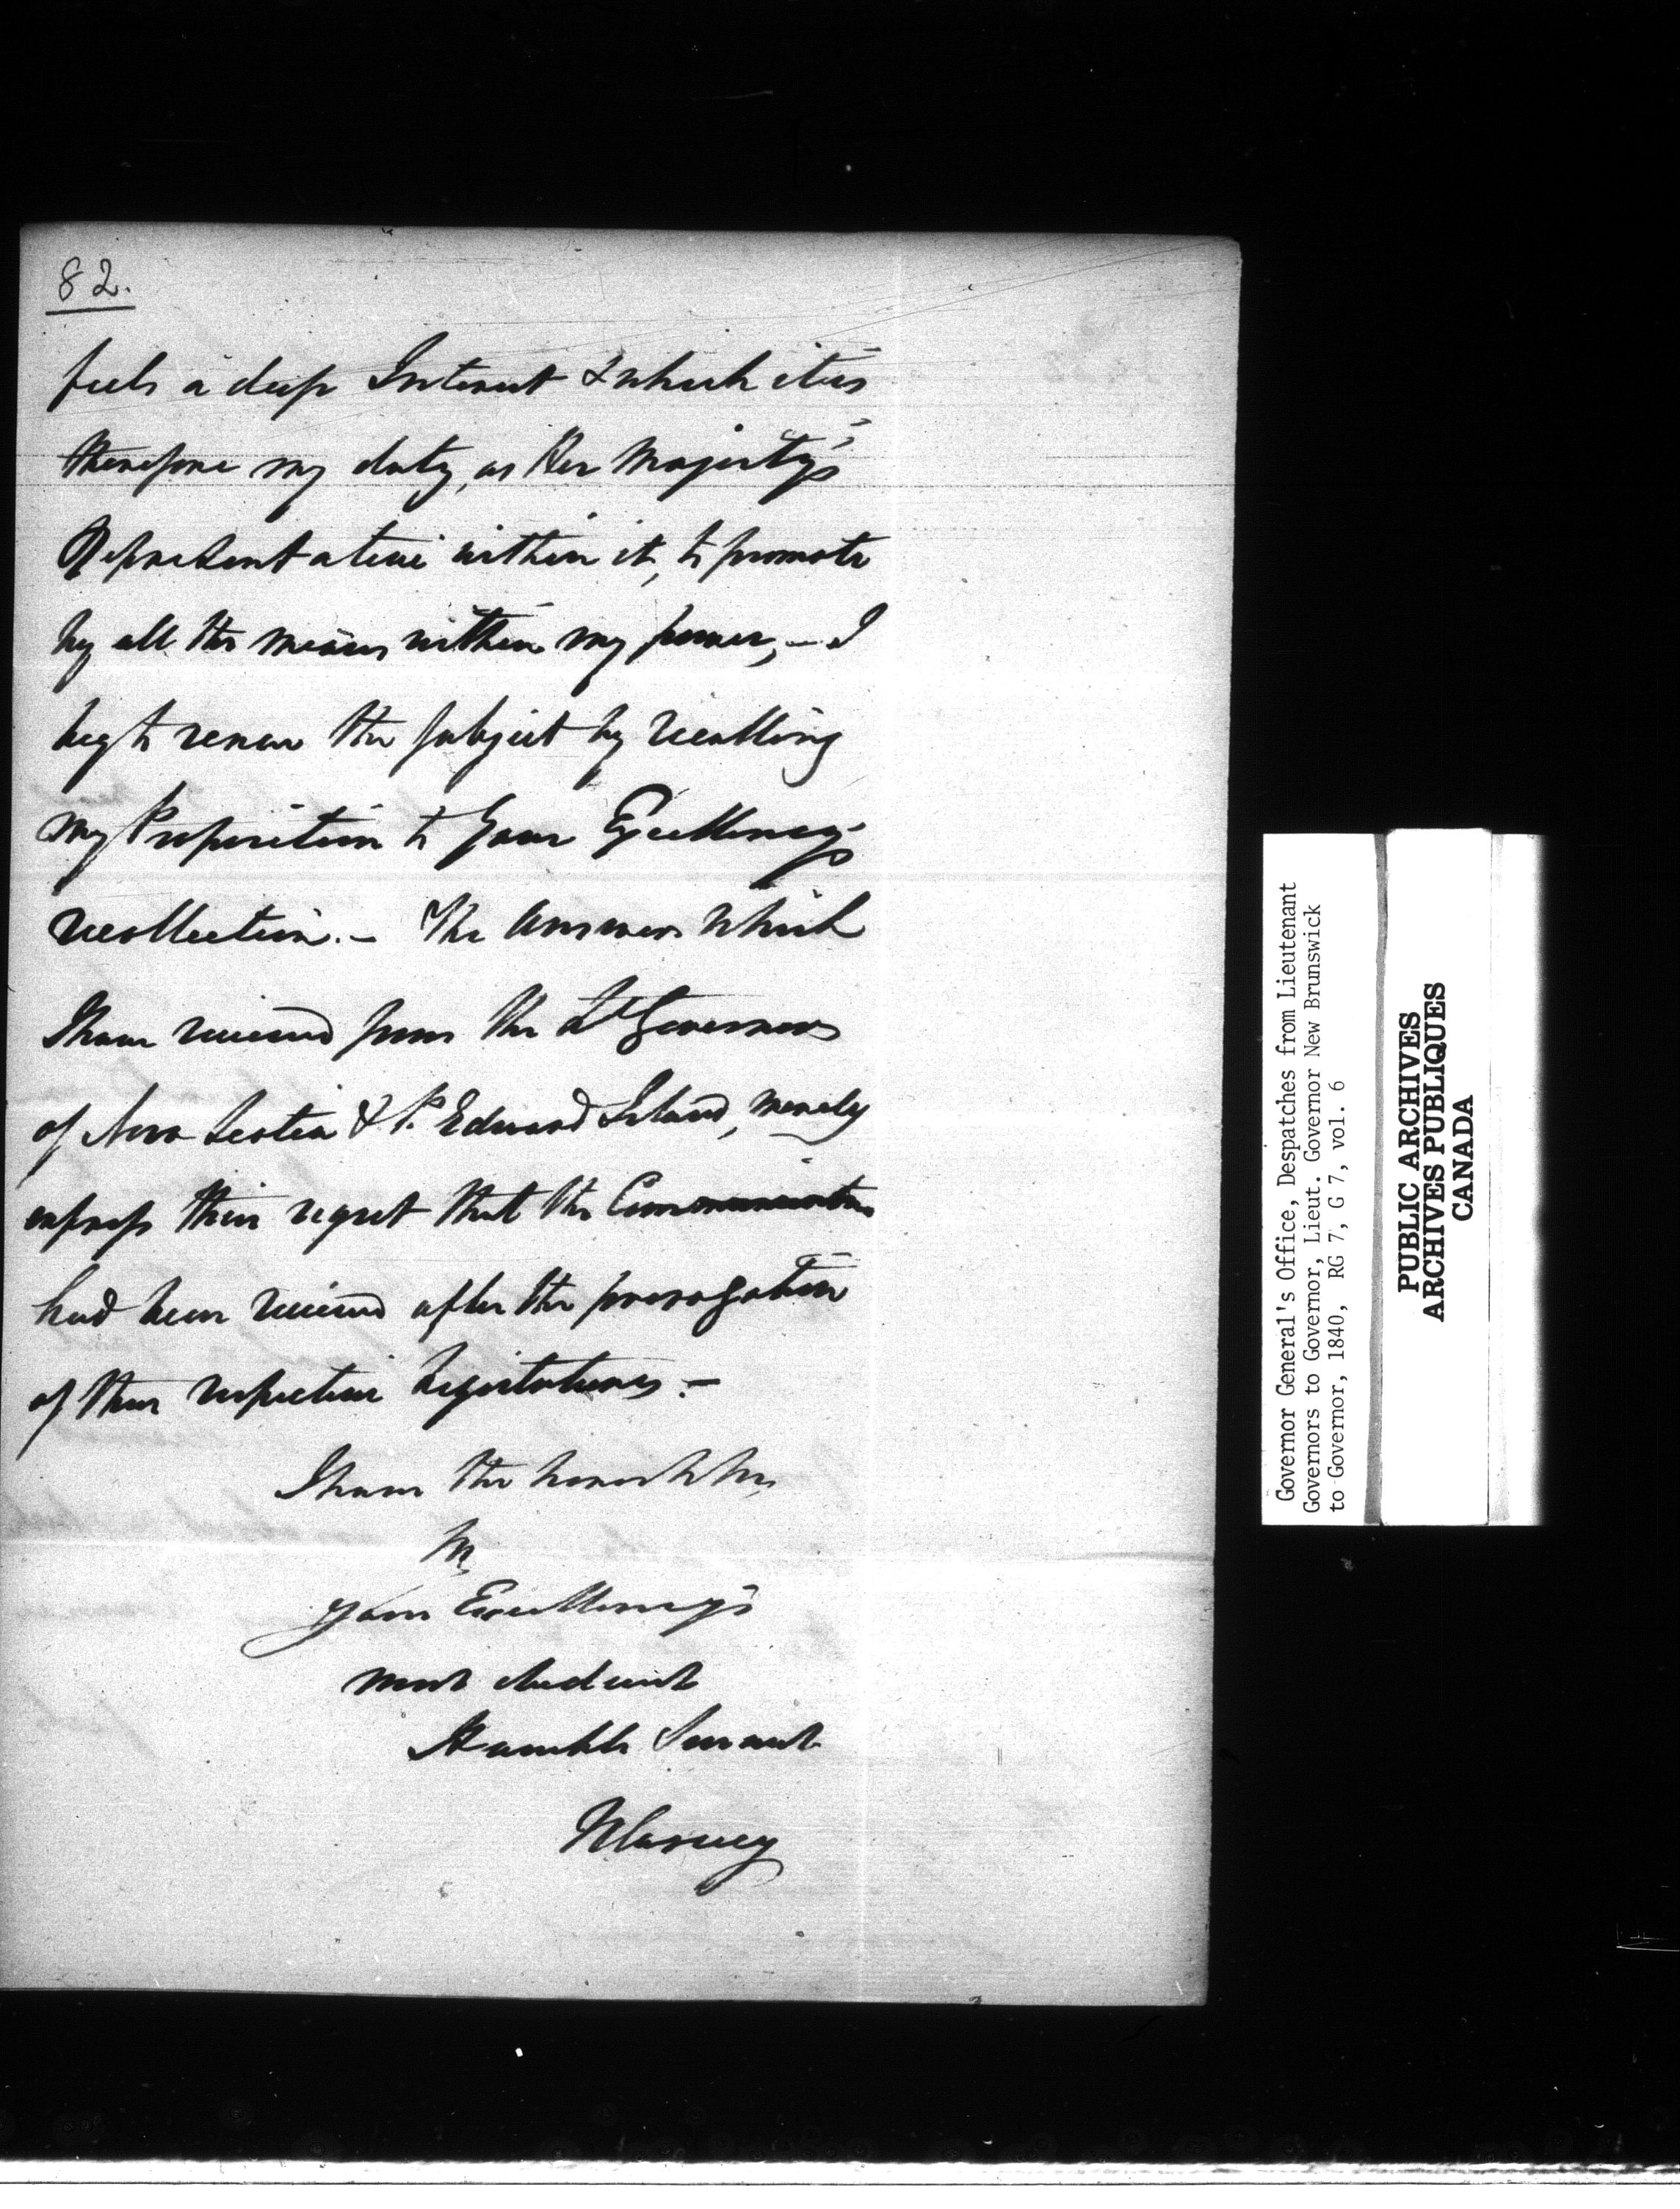 82.
feels a deep Interest & which it is
therefore my duty, as Her Majesty's
Representative within it, to promote
by all the means within my power, - I
beg to renew the subject by recalling
my Proposition to Your Excellency's
recollection. - The Answers which
I have received from the Lt Governors
of Nova Scotia & P. Edward Island, merely
express their regret that the Communication
had been received after the prorogation
of their respective Legislatures. -
I have the honor to be,
Your Excellency's
most obedient
Humble Servant
J Harvey
Governor General's Office, Despatches from Lieutenant
Governors to Governor, Lieut. Governor New Brunswick
to Governor, 1840, RG 7, G 7, vol. 6
PUBLIC ARCHIVES
ARCHIVES PUBLIQUES
CANADA